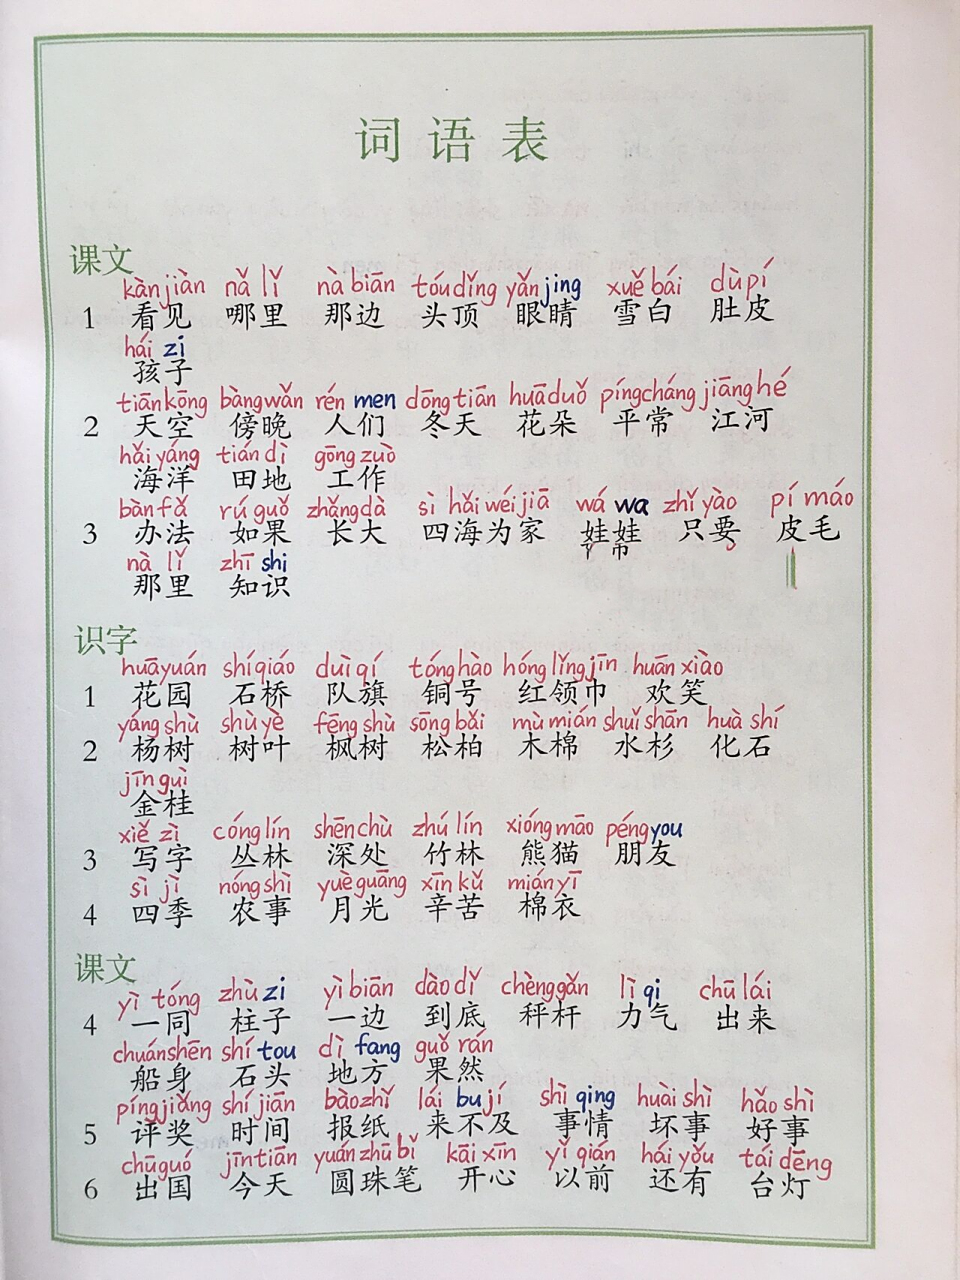 词语表
课文
kànjiàn nǎ lǐ nà biān tóudǐng yǎnjing xuě bái dù pí
1 看见 哪里 那边 头顶 眼睛 雪白 肚皮
hái zi
孩子
tiānkōng bàngwǎn rén men dōngtiān huāduǒ píngcháng jiānghé
2 天空 傍晚 人们 冬天 花朵 平常 江河
hǎiyáng tiándì gōngzuò
海洋 田地 工作
bànfǎ rúguǒ zhǎngdà sì hǎiwéijiā wáwa zhǐyào pí máo
3 办法 如果 长大 四海为家 娃娃 只要 皮毛
nà lǐ zhīshi
那里 知识
识字
huāyuán shíqiáo duìqí tónghào hónglǐngjīn huānxiào
1 花园 石桥 队旗 铜号 红领巾 欢笑
yángshù shùyè fēngshù sōngbǎi mùmián shuǐshān huàshí
2 杨树 树叶 枫树 松柏 木棉 水杉 化石
jīnguì
金桂
xiězì cónglín shēnchù zhúlín xióngmāo péngyou
3 写字 丛林 深处 竹林 熊猫 朋友
sì jì nóngshì yuèguāng xīnkǔ miányī
4 四季 农事 月光 辛苦 棉衣
课文
yì tóng zhùzi yìbiān dàodǐ chènggǎn lìqi chūlái
4 一同 柱子 一边 到底 秤杆 力气 出来
chuánshēn shítou dìfang guǒrán
船身 石头 地方 果然
píngjiǎng shíjiān bàozhǐ lái bují shìqing huàishì hǎoshì
5 评奖 时间 报纸 来不及 事情 坏事 好事
chūguó jīntiān yuánzhūbǐ kāixīn yǐqián háiyǒu táidēng
6 出国 今天 圆珠笔 开心 以前 还有 台灯